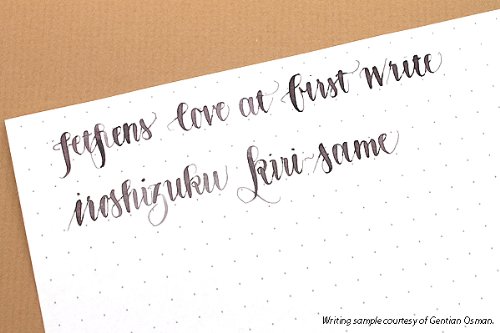 JetPens love at first write
iroshizuku kiri-same
Writing sample courtesy of Gentian Osman.